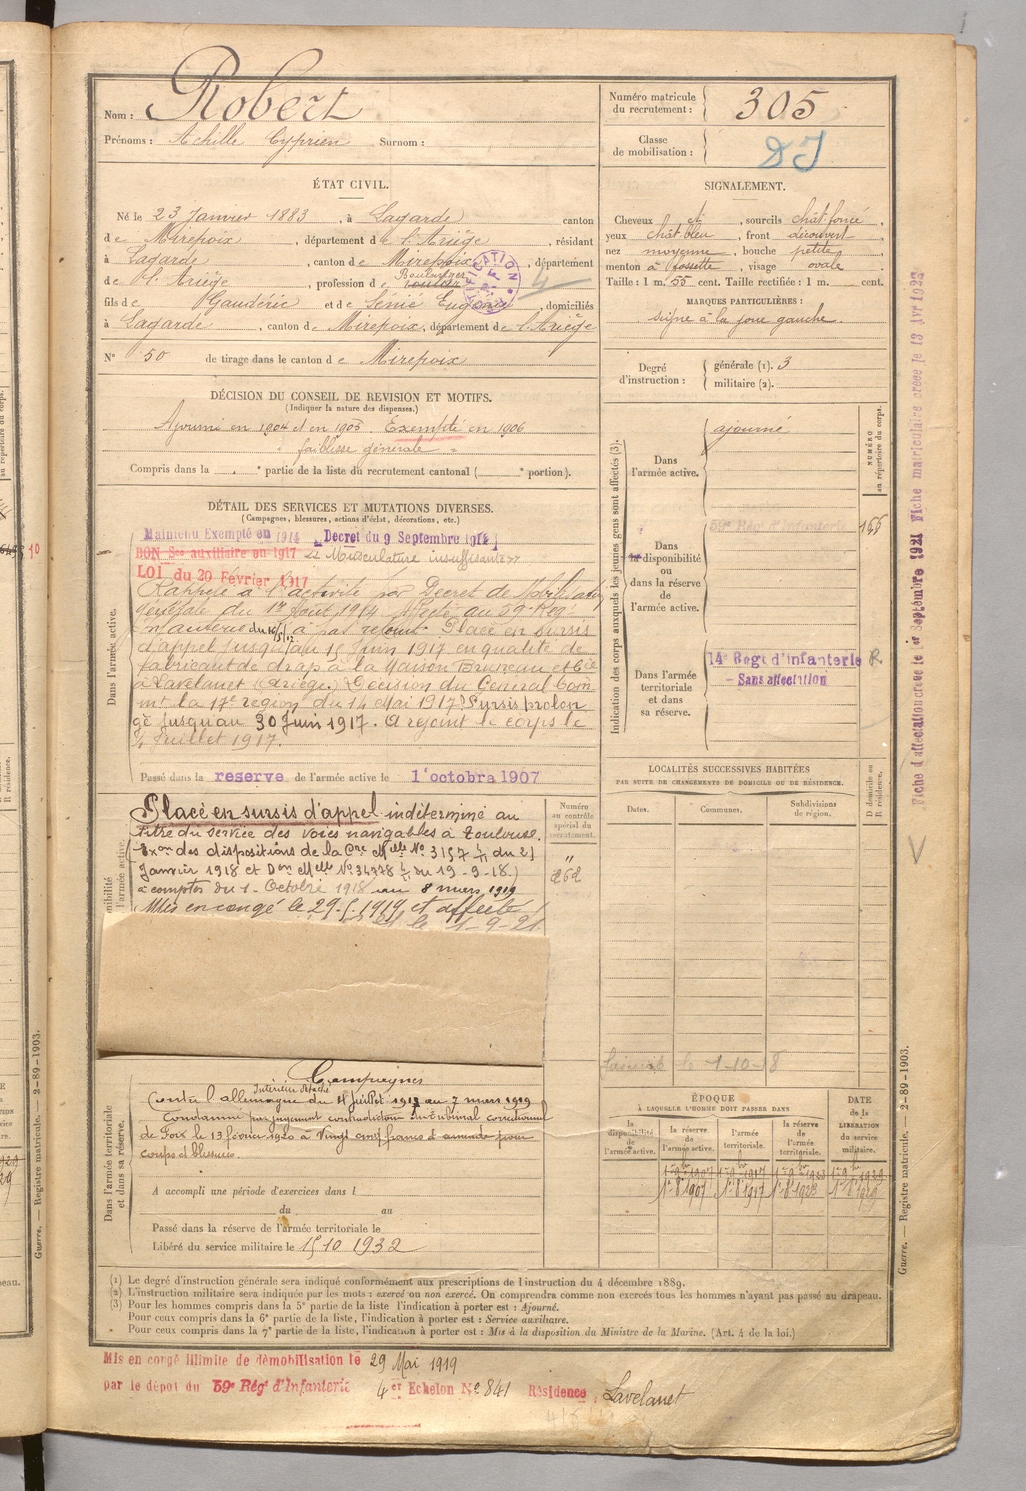 Nom : Robert
Prénoms : Achille Cyprien Surnom :
Numéro matricule du recrutement : 305
Classe de mobilisation :
ÉTAT CIVIL.
Né le 23 Janvier 1883, à Lagarde canton
de Mirepoix, département de l'Ariège, résidant
à Lagarde, canton de Mirepoix, département
de l'Ariège, profession de Boulanger
fils de Gaudéric et de Senié Eugénie, domiciliés
à Lagarde, canton de Mirepoix, département de l'Ariège
N° 50 de tirage dans le canton de Mirepoix
SIGNALEMENT.
Cheveux , sourcils chât. foncé,
yeux chât. bleu, front découvert
nez moyenne, bouche petite,
menton à fossette, visage ovale
Taille : 1 m. 55 cent. Taille rectifiée : 1 m. cent.
MARQUES PARTICULIÈRES :
signe à la joue gauche
Degré d'instruction : générale (1). 3
militaire (2).
DÉCISION DU CONSEIL DE REVISION ET MOTIFS.
(Indiquer la nature des dispenses.)
Ajourné en 1904 et en 1905. Exempté en 1906
faiblesse générale
Compris dans la e partie de la liste du recrutement cantonal ( e portion).
DÉTAIL DES SERVICES ET MUTATIONS DIVERSES.
(Campagnes, blessures, actions d'éclat, décorations, etc.)
Dans l'armée active.
Maintenu Exempté en 1914 [Decret du 9 Septembre 1914]
BON Sce auxiliaire en 1917 Musculature insuffisante
LOI du 20 Février 1917
Rappelé à l'activité par Décret de Mobilisation
générale du 1er Août 1914 Affecté au 59e Rég'
Infanterie à pas rejoint. Placé en sursis
d'appel jusqu'au 15 Juin 1917 en qualité de
fabricant de drap à la Maison Bruneau et Cie
à Lavelanet (Ariège.) Décision du Général Comm
m't la 17e région du 14 Mai 1917. Sursis prolon
gé jusqu'au 30 Juin 1917. A rejoint le corps le
4 Juillet 1917.
Passé dans la reserve de l'armée active le 1' octobre 1907
Placé en sursis d'appel indéterminé au
titre du service des voies navigables à Toulouse.
(Exon des dispositions de la Cre Mlle N° 3157 1/11 du 21
Janvier 1918 et Don Mlle N° 34778 1/11 du 19-9-18)
à compter du 1 - Octobre 1918 au 8 mars 1919
Mis en congé le 29.5.1919 et affecté
le 1-9-21
Numéro au contrôle spécial du recrutement.
"
262
Indication des corps auxquels les jeunes gens sont affectés (3).
NUMÉRO au répertoire du corps.
Dans l'armée active.
ajourné
Dans la disponibilité ou dans la réserve de l'armée active.
59e Rég' d'Infanterie 166
Dans l'armée territoriale et dans sa réserve.
14e Regt d'infanterie R
- Sans affectation
LOCALITÉS SUCCESSIVES HABITÉES
PAR SUITE DE CHANGEMENTS DE DOMICILE OU DE RÉSIDENCE.
Dates. Communes. Subdivisions de région. D domicile ou R résidence.
le 1-10-18
Dans l'armée territoriale et dans sa réserve.
Campagnes
Intérieur
Contre l'allemagne du 4 juillet 1917 au 7 mars 1919
Condamné par jugement contradictoire du tribunal correctionnel
de Foix le 13 février 1920 à Vingt cinq francs d'amende pour
coups et blessures.
A accompli une période d'exercices dans l
du au
Passé dans la réserve de l'armée territoriale le
Libéré du service militaire le 15 10 1932
ÉPOQUE
À LAQUELLE L'HOMME DOIT PASSER DANS
la disponibilité de l'armée active. la réserve de l'armée active. l'armée territoriale. la réserve de l'armée territoriale. DATE de la LIBÉRATION du service militaire.
1er 8bre 1907 1er 8bre 1917 1er 8bre 1923 1er 8bre 1929
(1) Le degré d'instruction générale sera indiqué conformément aux prescriptions de l'instruction du 4 décembre 1889.
(2) L'instruction militaire sera indiquée par les mots : exercé ou non exercé. On comprendra comme non exercés tous les hommes n'ayant pas passé au drapeau.
(3) Pour les hommes compris dans la 5e partie de la liste l'indication à porter est : Ajourné.
Pour ceux compris dans la 6e partie de la liste, l'indication à porter est : Service auxiliaire.
Pour ceux compris dans la 7e partie de la liste, l'indication à porter est : Mis à la disposition du Ministre de la Marine. (Art. 4 de la loi.)
Mis en congé illimité de démobilisation le 29 Mai 1919
par le dépôt du 59e Rég' d'Infanterie 4er Echelon N° 841 Résidence : Lavelanet
Fiche d'affectation créée le 1er Septembre 1921 Fiche matriculaire créée le 13 Avr 1923
Guerre. — Registre matricule. — 2-89-1903.